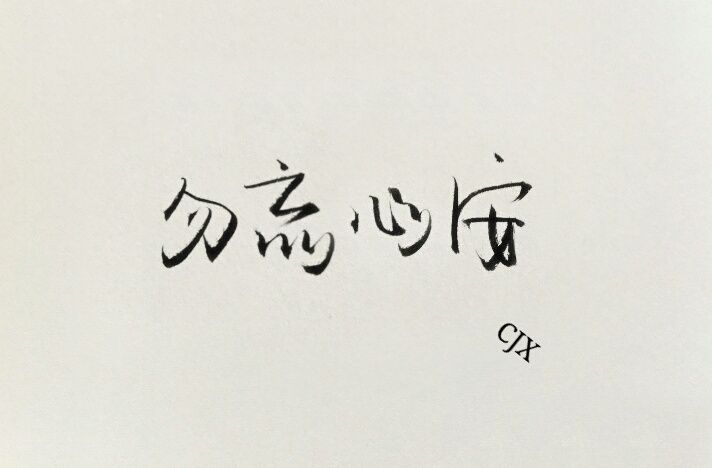 勿忘心安
CJX